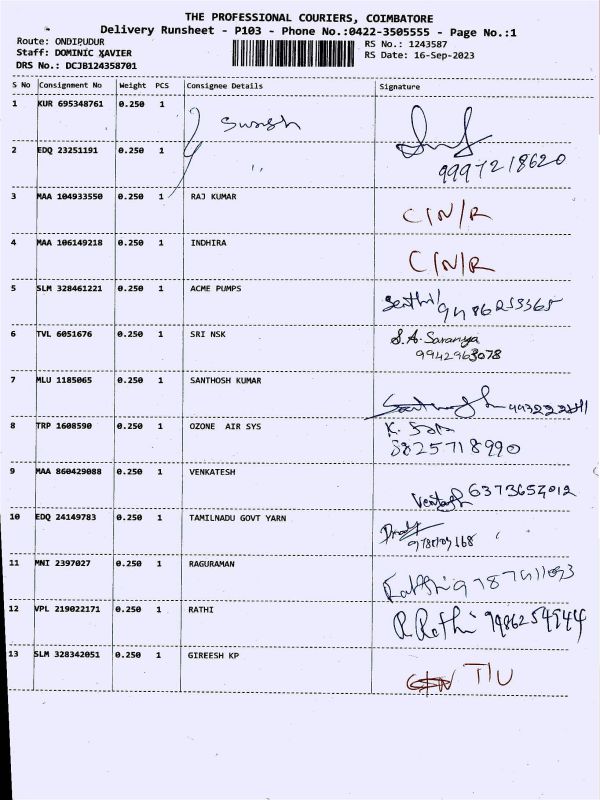 THE PROFESSIONAL COURIERS, COIMBATORE
Delivery Runsheet - P103 - Phone No.:0422-3505555 - Page No.:1
Route: ONDIPUDUR RS No.: 1243587
Staff: DOMINIC XAVIER RS Date: 16-Sep-2023
DRS No.: DCJB124358701
S No Consignment No Weight PCS Consignee Details Signature
1 KUR 695348761 0.250 1
2 EDQ 23251191 0.250 1 ,, 9997218620
3 MAA 104933550 0.250 1 RAJ KUMAR C/N/R
4 MAA 106149218 0.250 1 INDHIRA C/N/R
5 SLM 328461221 0.250 1 ACME PUMPS Senthil
6 TVL 6051676 0.250 1 SRI NSK S.A. Saranya
9942963078
7 MLU 1185065 0.250 1 SANTHOSH KUMAR
8 TRP 1608590 0.250 1 OZONE AIR SYS K.
9 MAA 860429088 0.250 1 VENKATESH
10 EDQ 24149783 0.250 1 TAMILNADU GOVT YARN
11 MNI 2397027 0.250 1 RAGURAMAN
12 VPL 219022171 0.250 1 RATHI R Rathi
13 SLM 328342051 0.250 1 GIREESH KP T/U